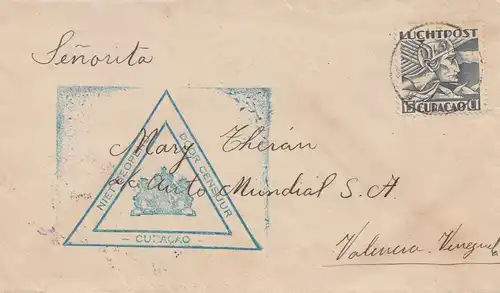 LUCHTPOST
15 CURAÇAO 15
Señorita
NIET GEOPEND DOOR CENSUUR
- CURAÇAO -
Mary Therán
Auto Mundial S.A
Valencia - Venezuela